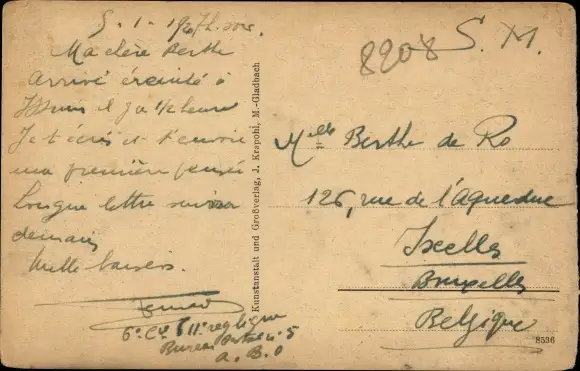 5-1-192
Ma chère Berthe
Arrivé éreinté à
il y a 1/2 heure
Je t'écris et t'envoie
ma première pensée
Longue lettre suivra
demain
Mille baisers.
6e Cie 11e reg ligne
Bureau Postal n° 5
A. B. O
Kunstanstalt und Großverlag, J. Krapohl, M.-Gladbach
8908
S. M.
Melle Berthe de Ro
126, rue de l'Aqueduc
Ixelles
Bruxelles
Belgique
8536